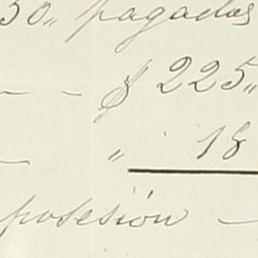 30„ pagadas
— — $ 225„
— „ 18
posesión —